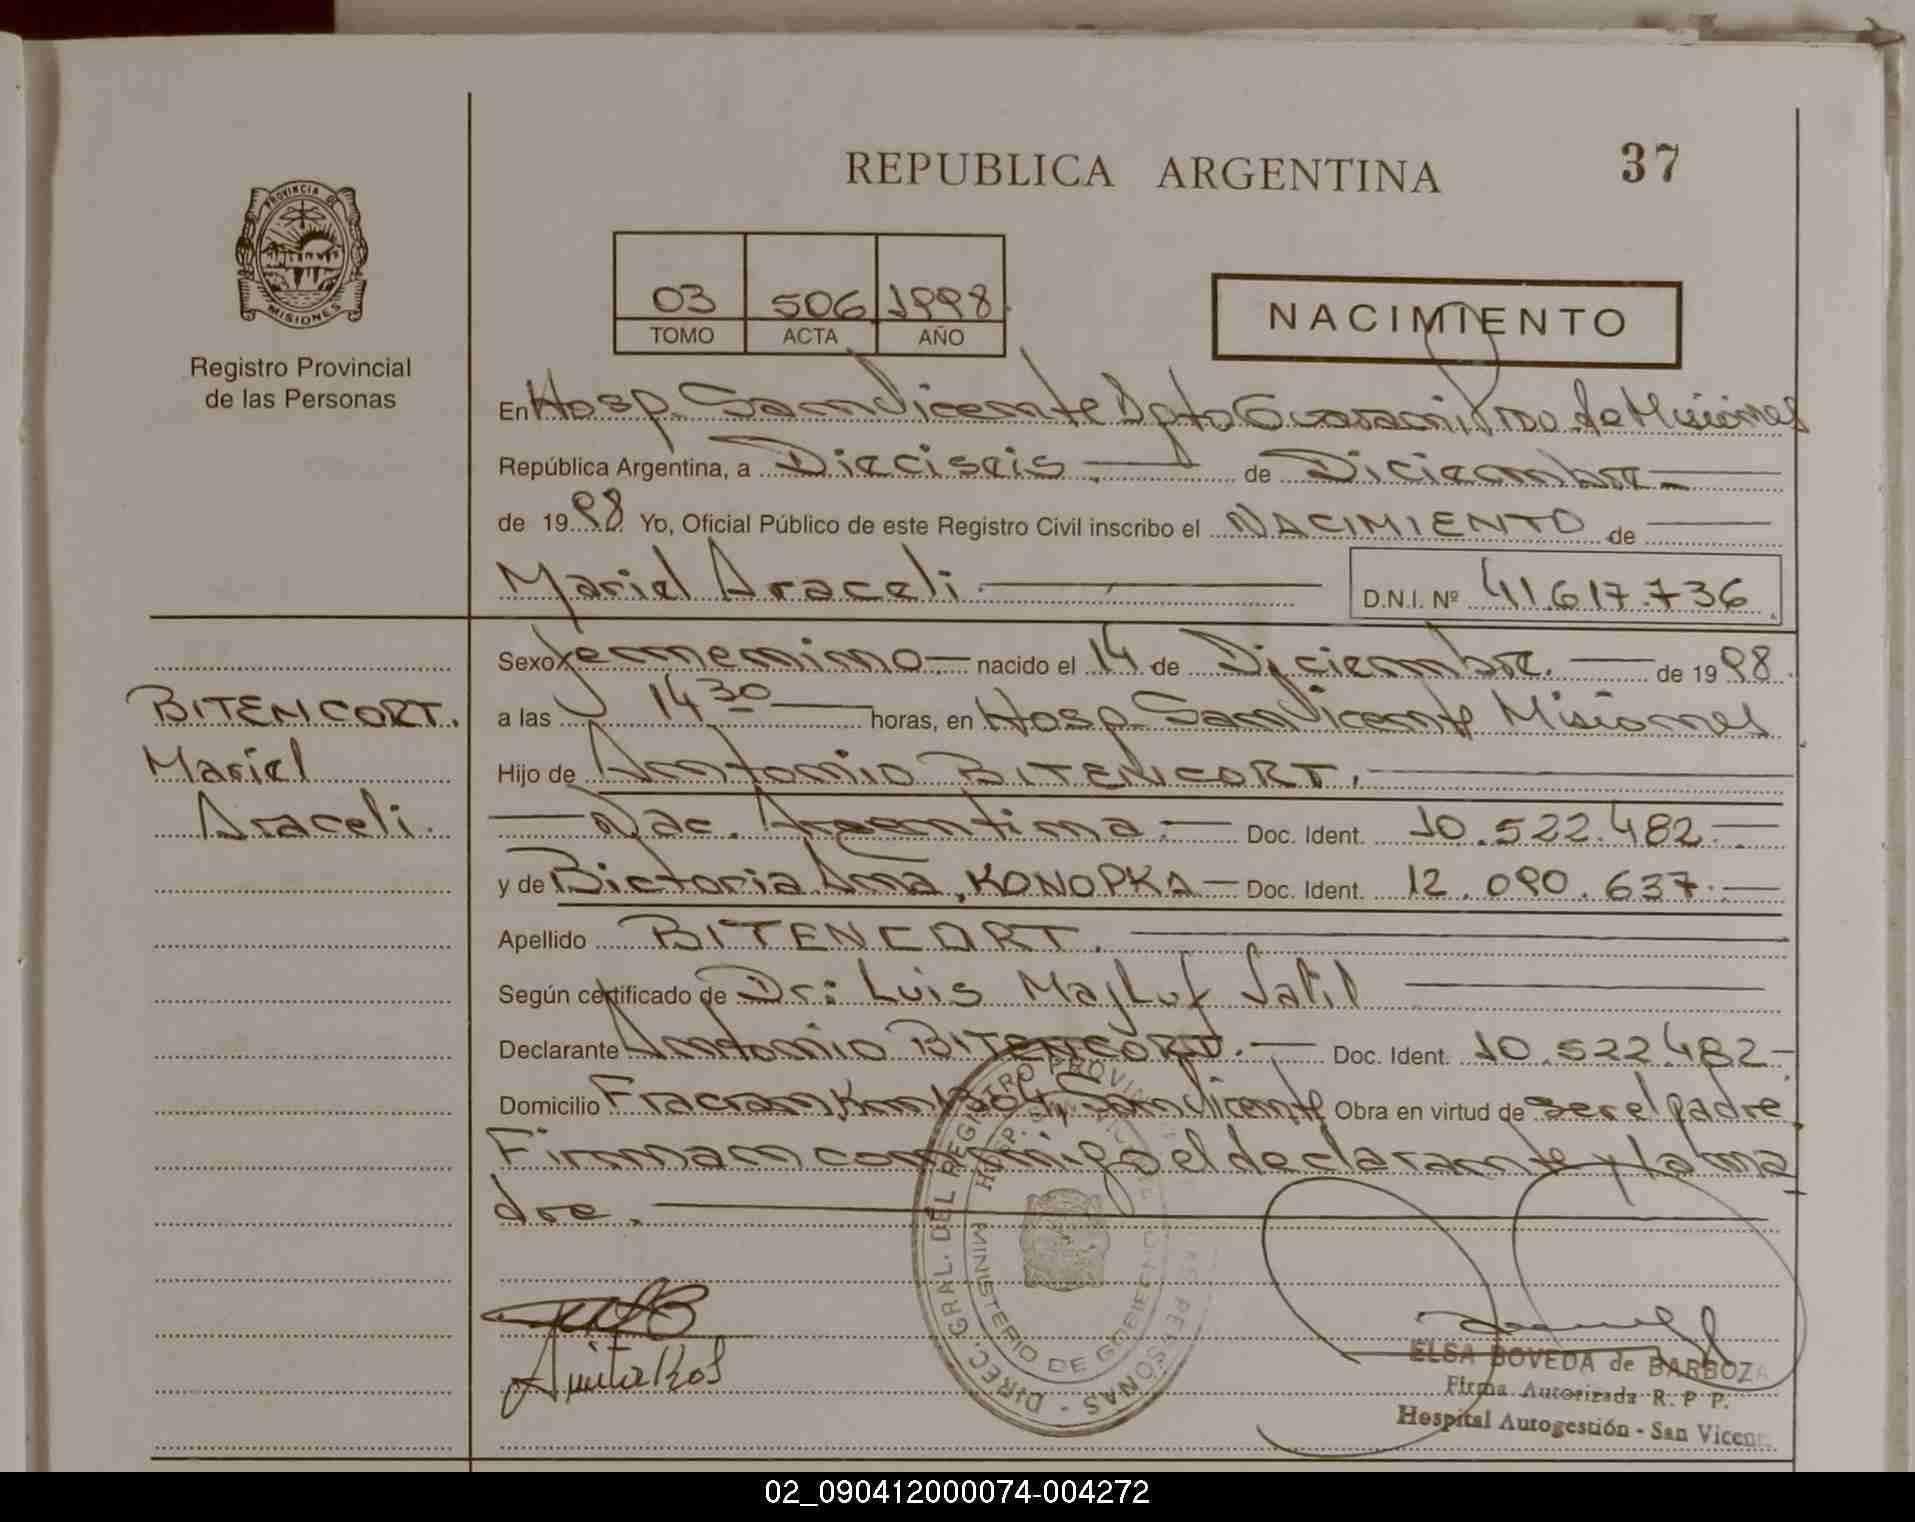 REPUBLICA ARGENTINA
37
PROVINCIA DE
MISIONES
Registro Provincial
de las Personas
03 506 1998
TOMO ACTA AÑO
NACIMIENTO
En Hosp. San Vicente Dpto Guarani Pro de Misiones
República Argentina, a Dieciseis. de Diciembre
de 1998 Yo, Oficial Público de este Registro Civil inscribo el NACIMIENTO de
Mariel Araceli
D.N.I. Nº 41.617.736
BITENCORT.
Mariel
Araceli.
Sexo femenino nacido el 14 de Diciembre. de 1998
a las 14 30 horas, en Hosp. San Vicente Misiones
Hijo de Antonio BITENCORT.
Nac. Argentina. Doc. Ident. 10.522.482
y de Bictoria Ana, KONOPKA Doc. Ident. 12.090.637.
Apellido BITENCORT.
Según certificado de Dr: Luis Majluf Jalil
Declarante Antonio BITENCORT. Doc. Ident. 10.522482
Domicilio Fracran Km 1304, San Vicente Obra en virtud de ser el padre.
Firman conmigo el declarante y la ma
dre.
DIREC. GRAL. DEL REGISTRO PROVINCIAL DE LAS PERSONAS
HOSP. SAN VICENTE
MINISTERIO DE GOBIERNO
Anita Kos
ELSA BOVEDA de BARBOZA
Firma Autorizada R. P. P.
Hospital Autogestión - San Vicente
02_090412000074-004272